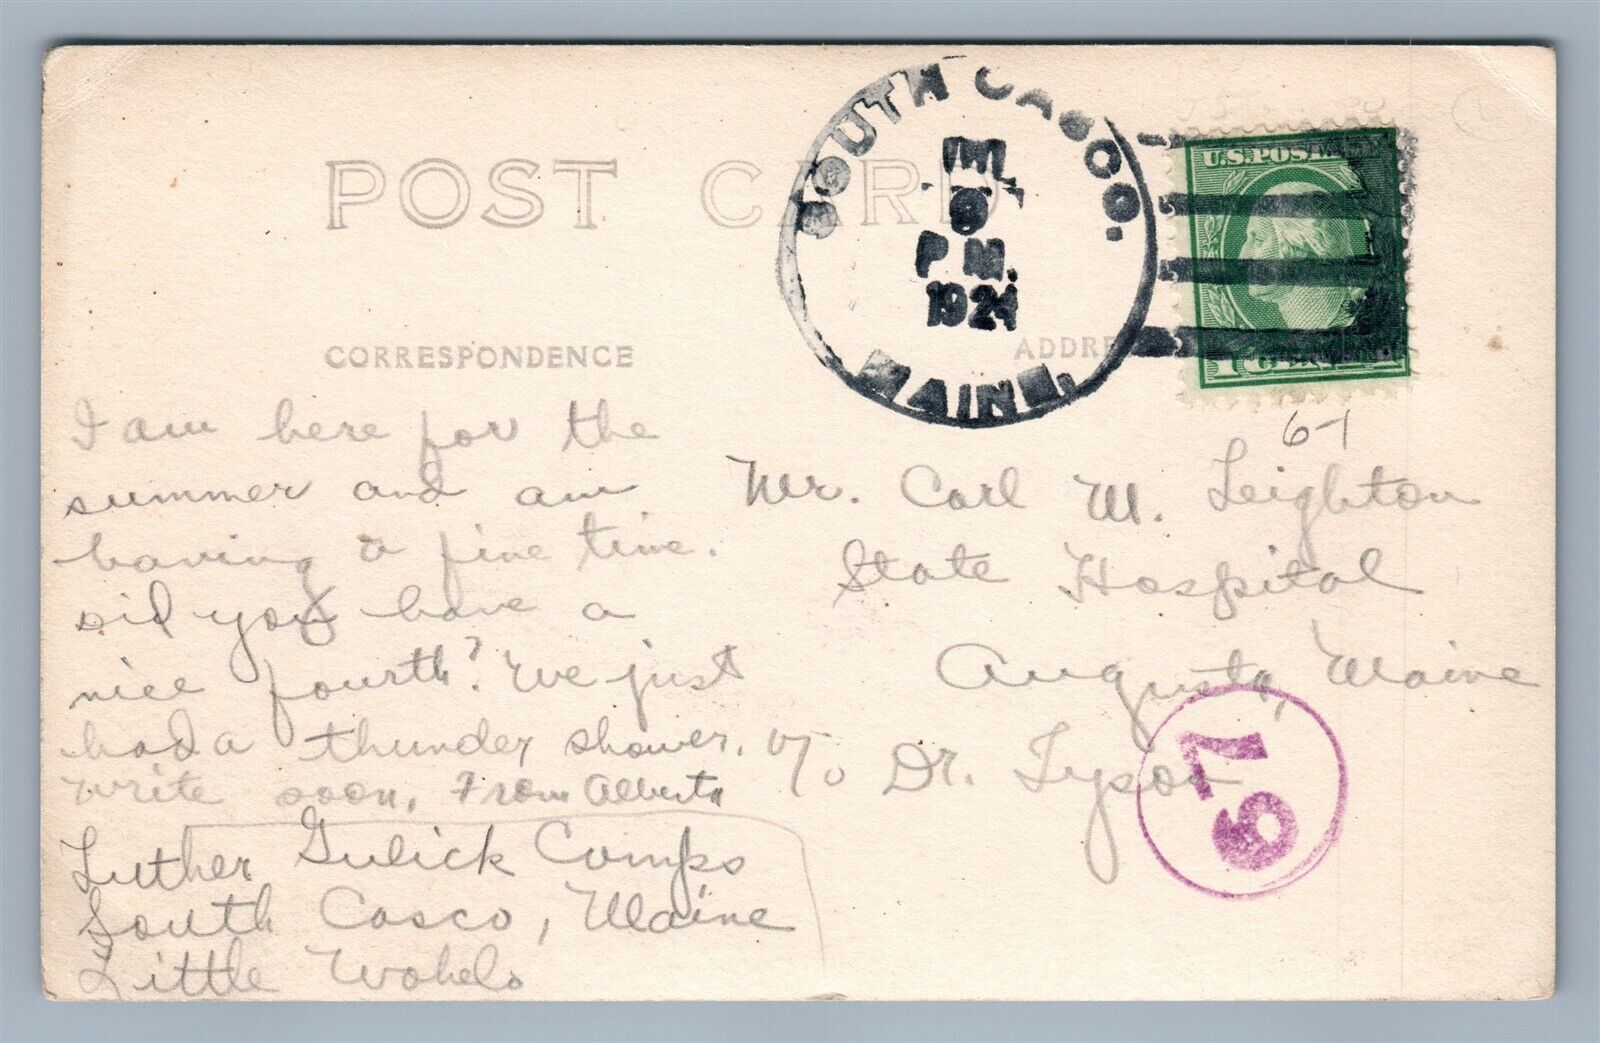 POST CARD
CORRESPONDENCE
ADDRE
SOUTH CASCO.
JUL
P M.
1924
MAINE.
U.S. POST
1 CENT
6-1
I am here for the
summer and am
having a fine time.
Did you have a
nice fourth? We just
had a thunder shower.
Write soon, From Alberta
Luther Gulick Camps
South Casco, Maine
Little Wohelo
Mr. Carl M. Leighton
State Hospital
Augusta, Maine
c/o Dr. Tyson
67